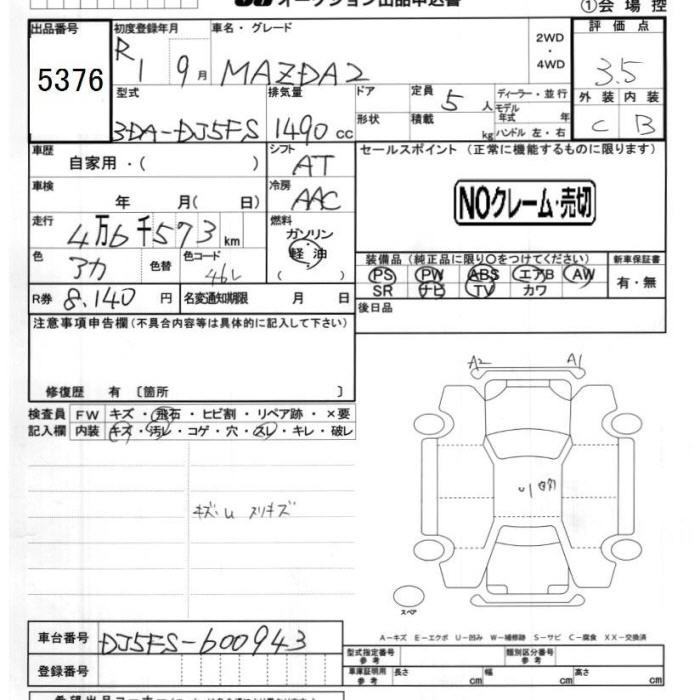 オークション出品申込書
①会場控
出品番号
初度登録年月
車名・グレード
2WD
・
4WD
評価点
5376
R1 9月
MAZDA2
3.5
型式
排気量
ドア
定員 5人
ディーラー・並行
外装 内装
3DA-DJ5FS
1490cc
形状
積載 kg
モデル年式 年
ハンドル 左・右
C B
車歴
自家用・( )
シフト
AT
セールスポイント (正常に機能するものに限ります)
車検
年 月( 日)
冷房
AAC
NOクレーム・売切
走行
4万6千573km
燃料
ガソリン
軽油
( )
色
アカ
色替
色コード
46L
装備品 (純正品に限り○をつけてください)
新車保証書
PS PW ABS エアB AW
有・無
SR ナビ TV カワ
R券 8,140円
名変通知期限 月 日
後日品
注意事項申告欄(不具合内容等は具体的に記入して下さい)
修復歴 有 〔箇所 〕
検査員
記入欄
FW キズ・飛石・ヒビ割・リペア跡・×要
内装 キズ・汚レ・コゲ・穴・スレ・キレ・破レ
A2 A1
キズU スリキズ
スペア
A-キズ E-エクボ U-凹み W-補修跡 S-サビ C-腐食 XX-交換済
車台番号
DJ5FS-600943
型式指定番号
参考
類別区分番号
参考
登録番号
車庫証明用
参考
長さ cm
幅 cm
高さ cm